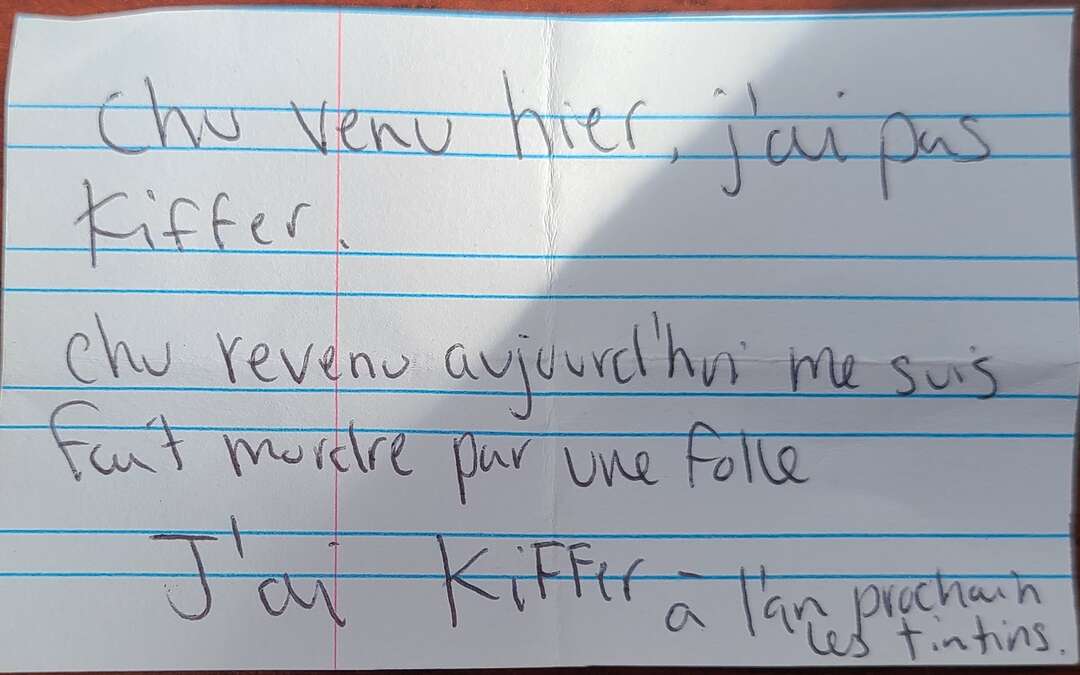 Chu venu hier, j'ai pas
Kiffer.
Chu revenu aujourd'hui me suis
fait mordre par une folle
J'ai KiFFer à l'an prochain
les tintins.